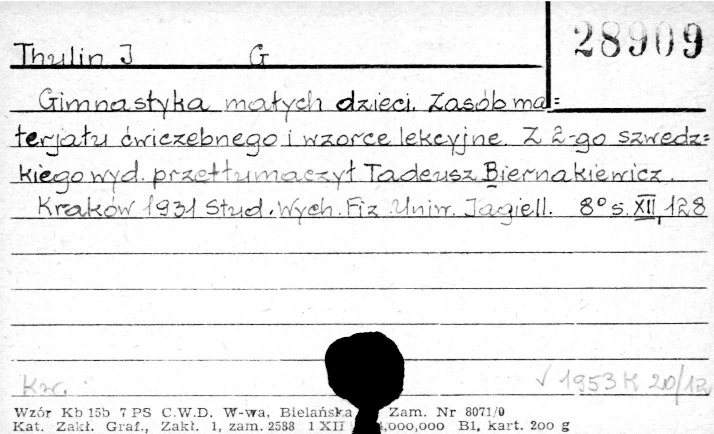 28909
Thulin J G
Gimnastyka małych dzieci. Zasób ma=
terjału ćwiczebnego i wzorce lekcyjne. Z 2-go szwedz=
kiego wyd. przetłumaczył Tadeusz Biernakiewicz.
Kraków 1931 Stud. Wych. Fiz. Uniw. Jagiell. 8° s. XII, 128
√ 1953 K 20/12
Wzór Kb 15b 7 PS C.W.D. W-wa, Bielańska Zam. Nr 8071/0
Kat. Zakł. Graf., Zakł. 1, zam. 2588 1 XII ,000,000 B1, kart. 200 g